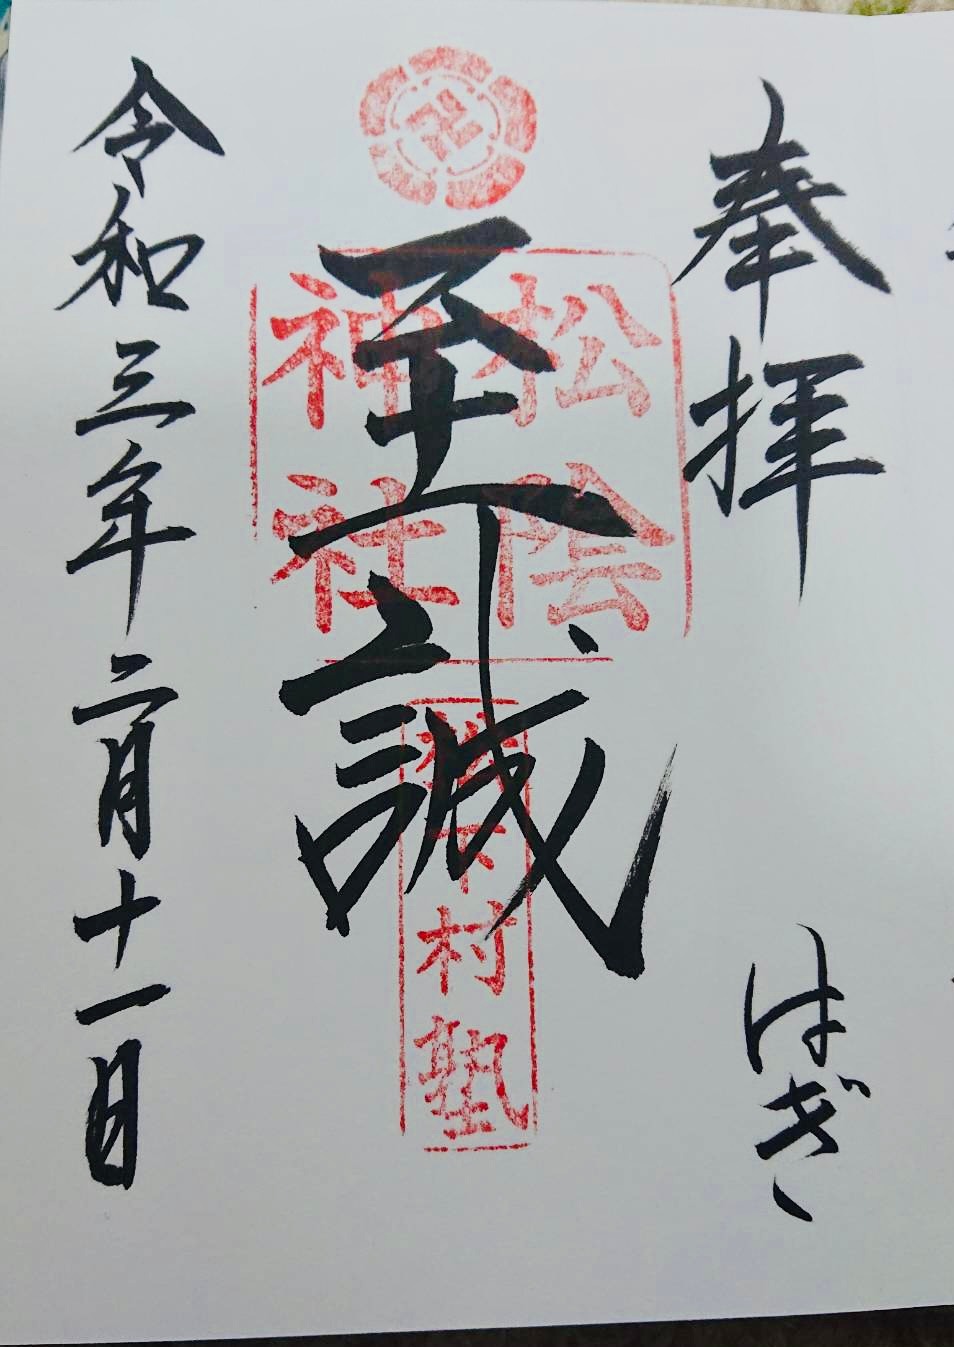 奉拝 はぎ
至誠
松陰
神社
松下村塾
令和三年二月十一日